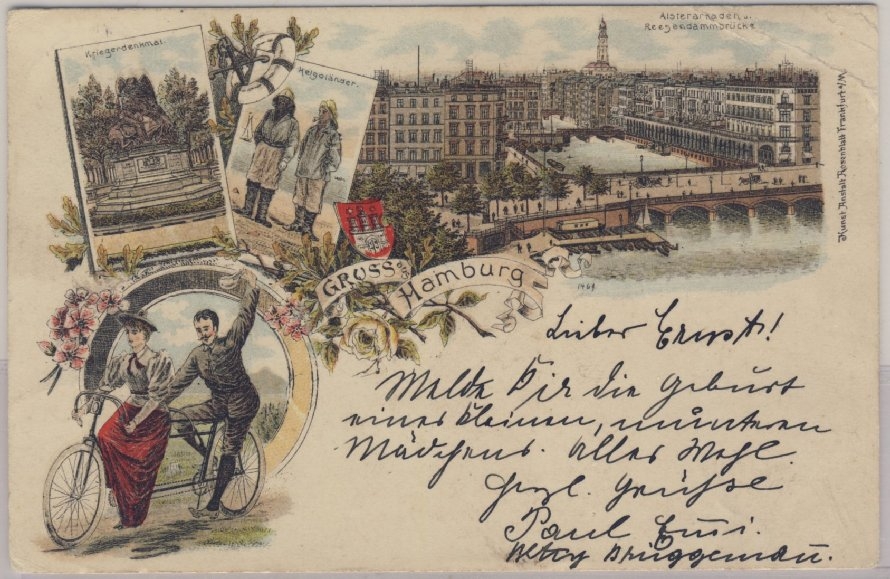 Kriegerdenkmal.
Helgoländer.
Alsterarkaden u.
Reesendammbrücke
Kunst Anstalt Rosenblatt Frankfurt a/M.
GRUSS a.
Hamburg
1464
Lieber Ernst!
Melde Dir die Geburt
eines kleinen, munteren
Mädchens. Alles Wohl.
Herzl. Grüsse
Paul
Brüggemann.